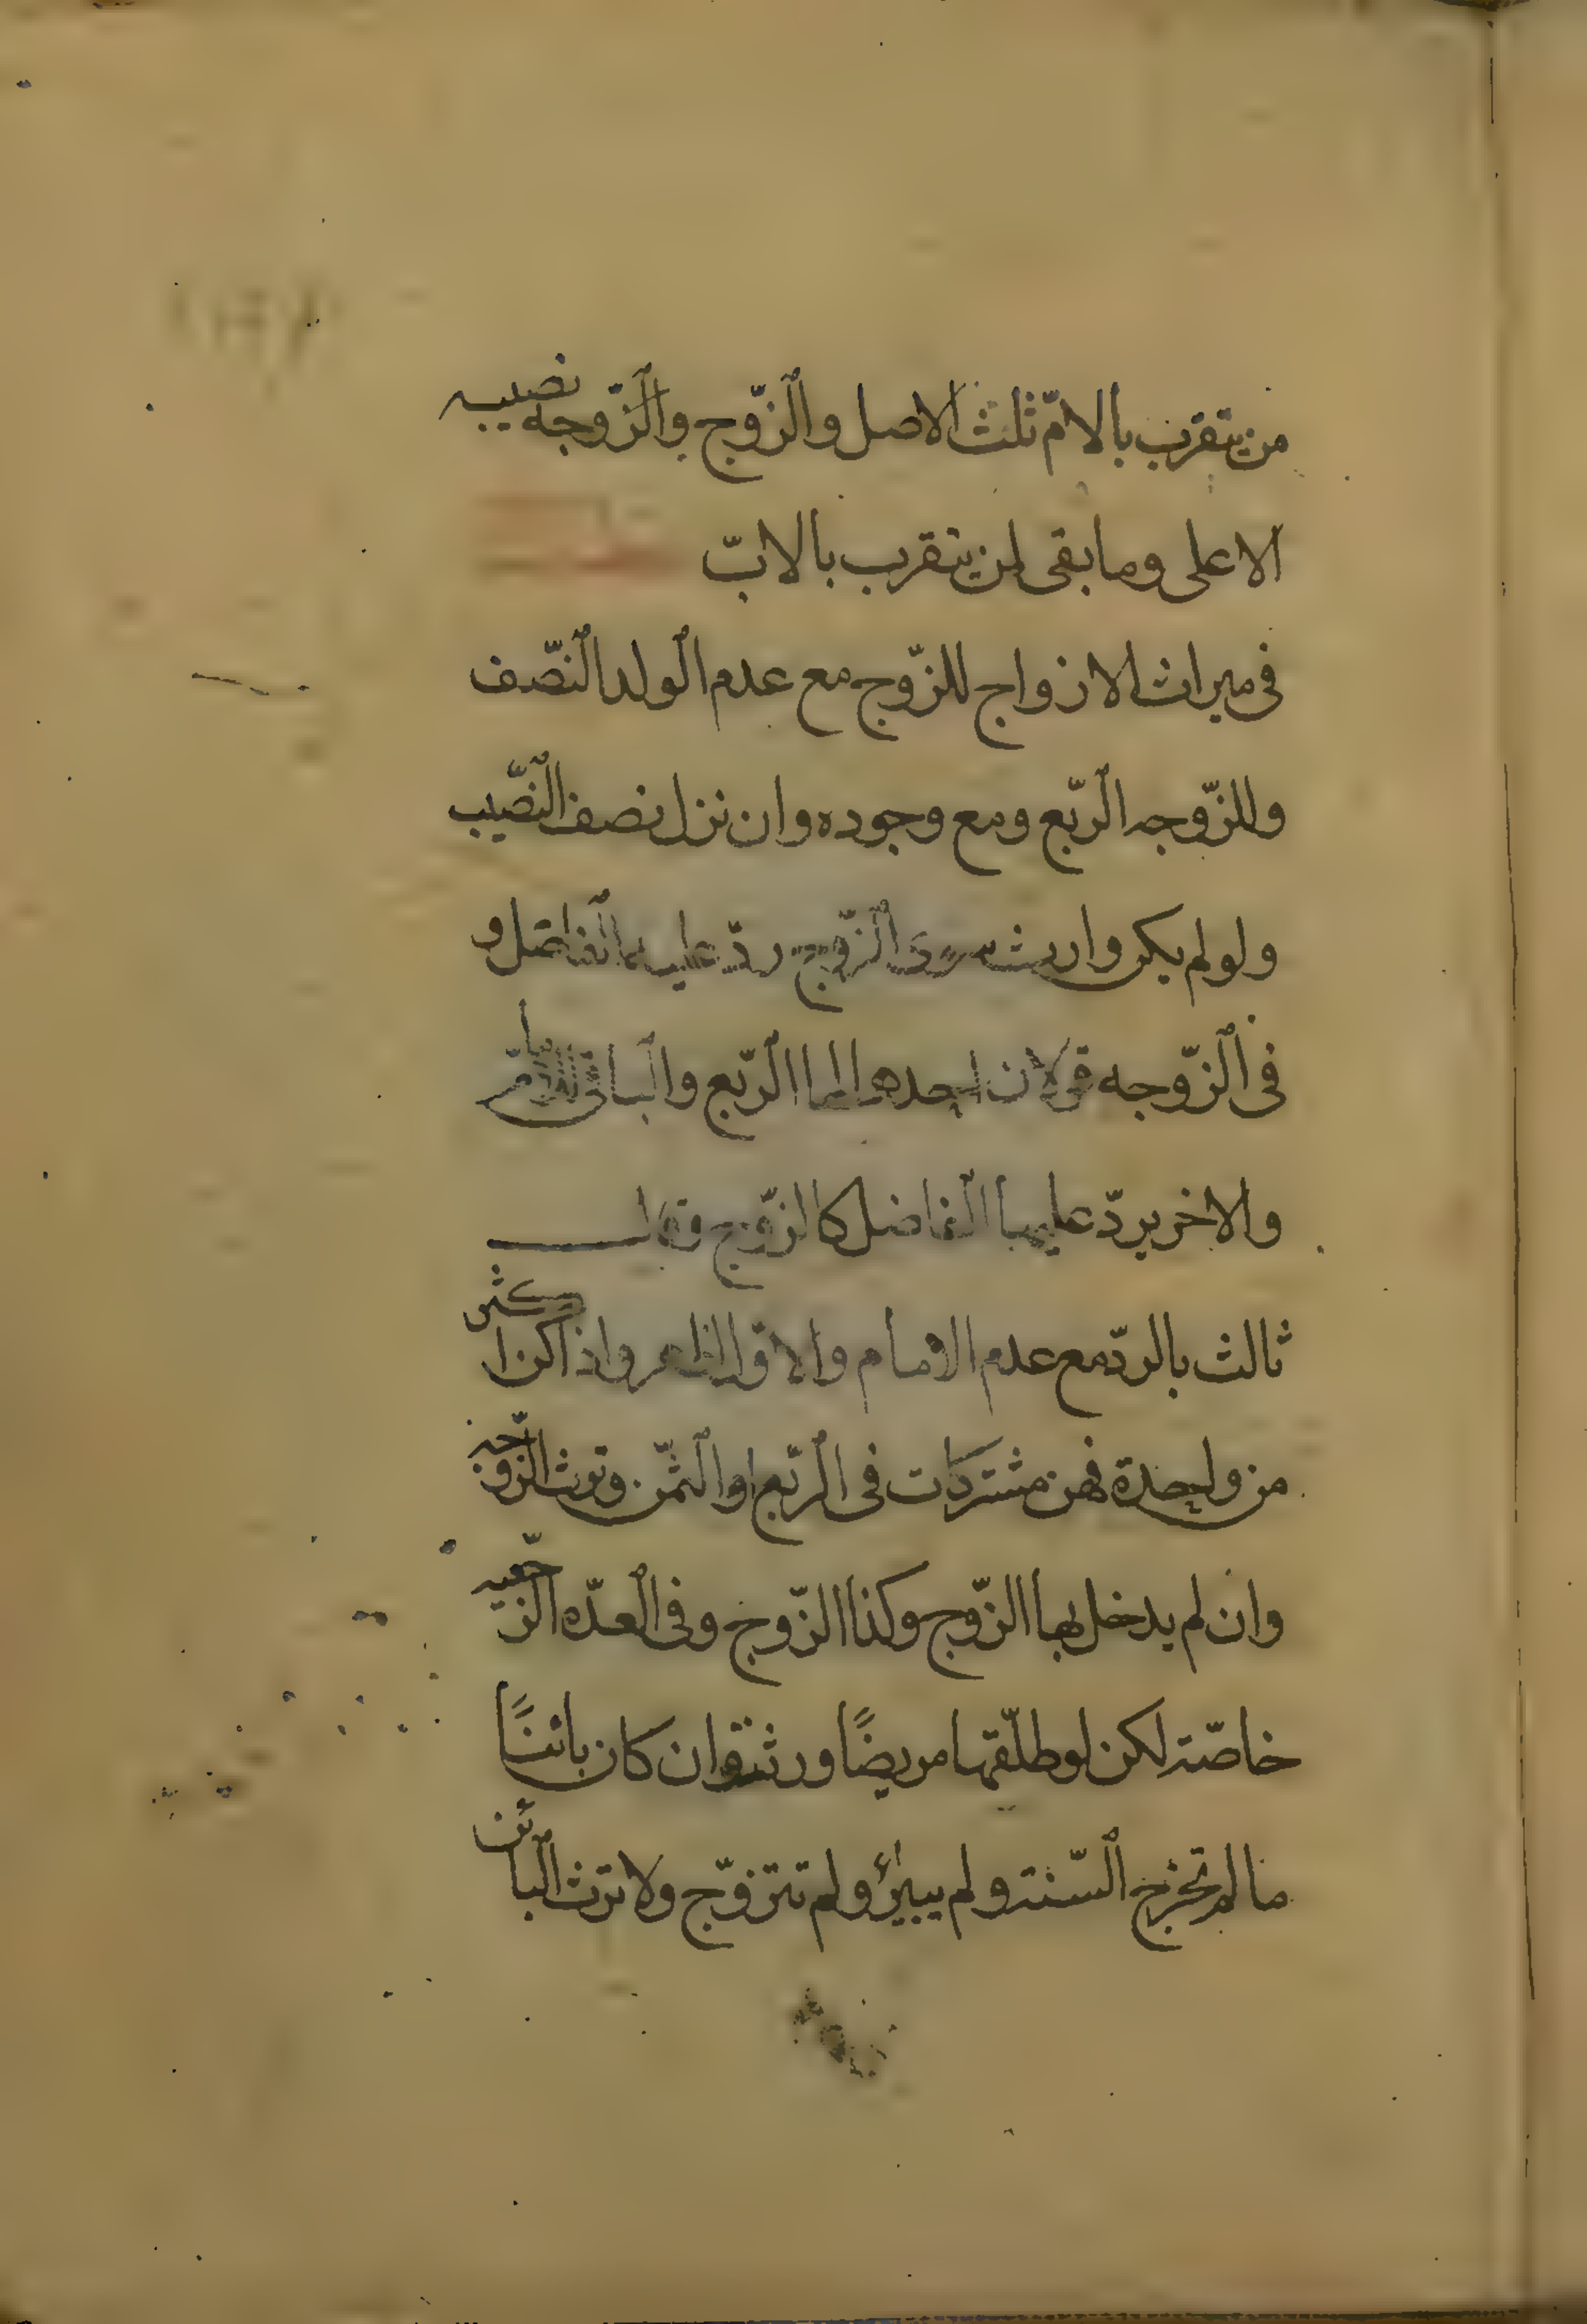 من يتقرب بالامّ ثلث الاصل والزّوج والزّوجه نصيبه
الاعلى وما بقى لمن يتقرب بالابّ
فى ميراث الازواج للزّوج مع عدم الولد النّصف
وللزّوجه الربّع ومع وجوده وان نزل نصف النّصيب
ولو لم يكن وارث سوى الزّوج ردّ عليه الفاضل و
فى الزّوجه قولان احدهما لها الربّع والباقى للامام
والاخر يردّ عليها الفاضل كالزّوج وقال
ثالث بالردّ مع عدم الامام والاوّل اظهر واذا كن اكثر
من واحدة فهن مشتركات فى الربّع او الثمّن وترث الزّوجه
وان لم يدخل بها الزّوج وكذا الزّوج وفى العدّه الرّجعيه
خاصّة لكن لو طلّقها مريضًا ورثت وان كان بائنًا
ما لم تخرج السّنة ولم يبرأ ولم تتزوّج ولا ترث البائن